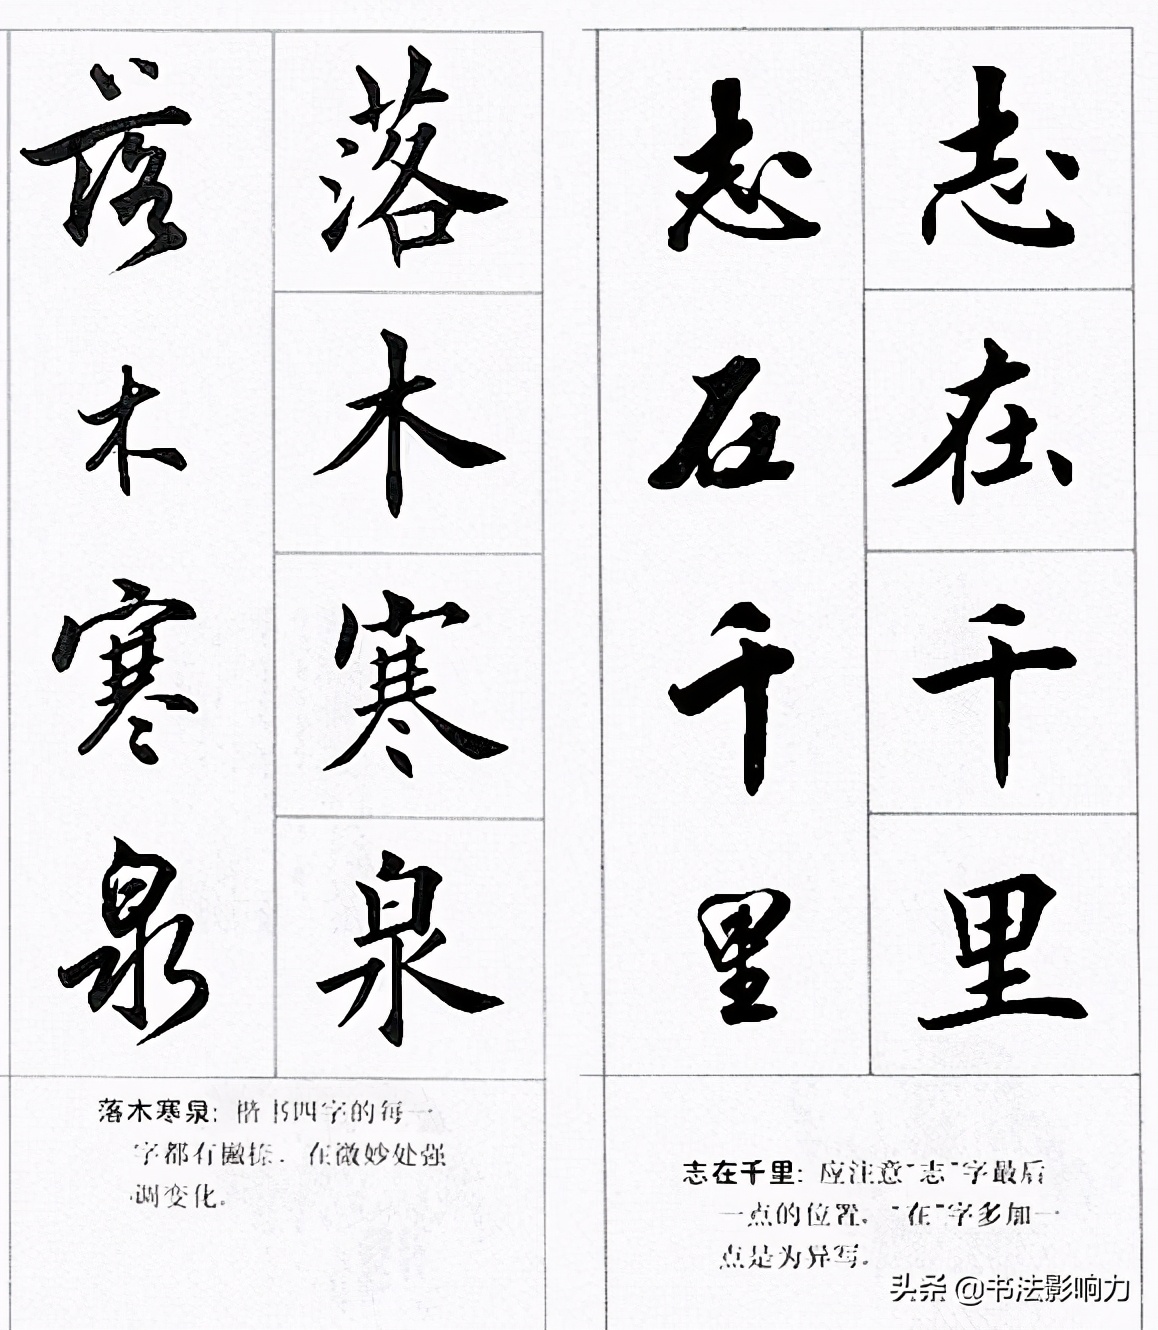 落 落
木 木
寒 寒
泉 泉
落木寒泉：楷书四字的每一
字都有撇捺．在微妙处强
调变化。
志 志
在 在
千 千
里 里
志在千里：应注意“志”字最后
一点的位置。“在”字多加一
点是为异写。
头条 @书法影响力